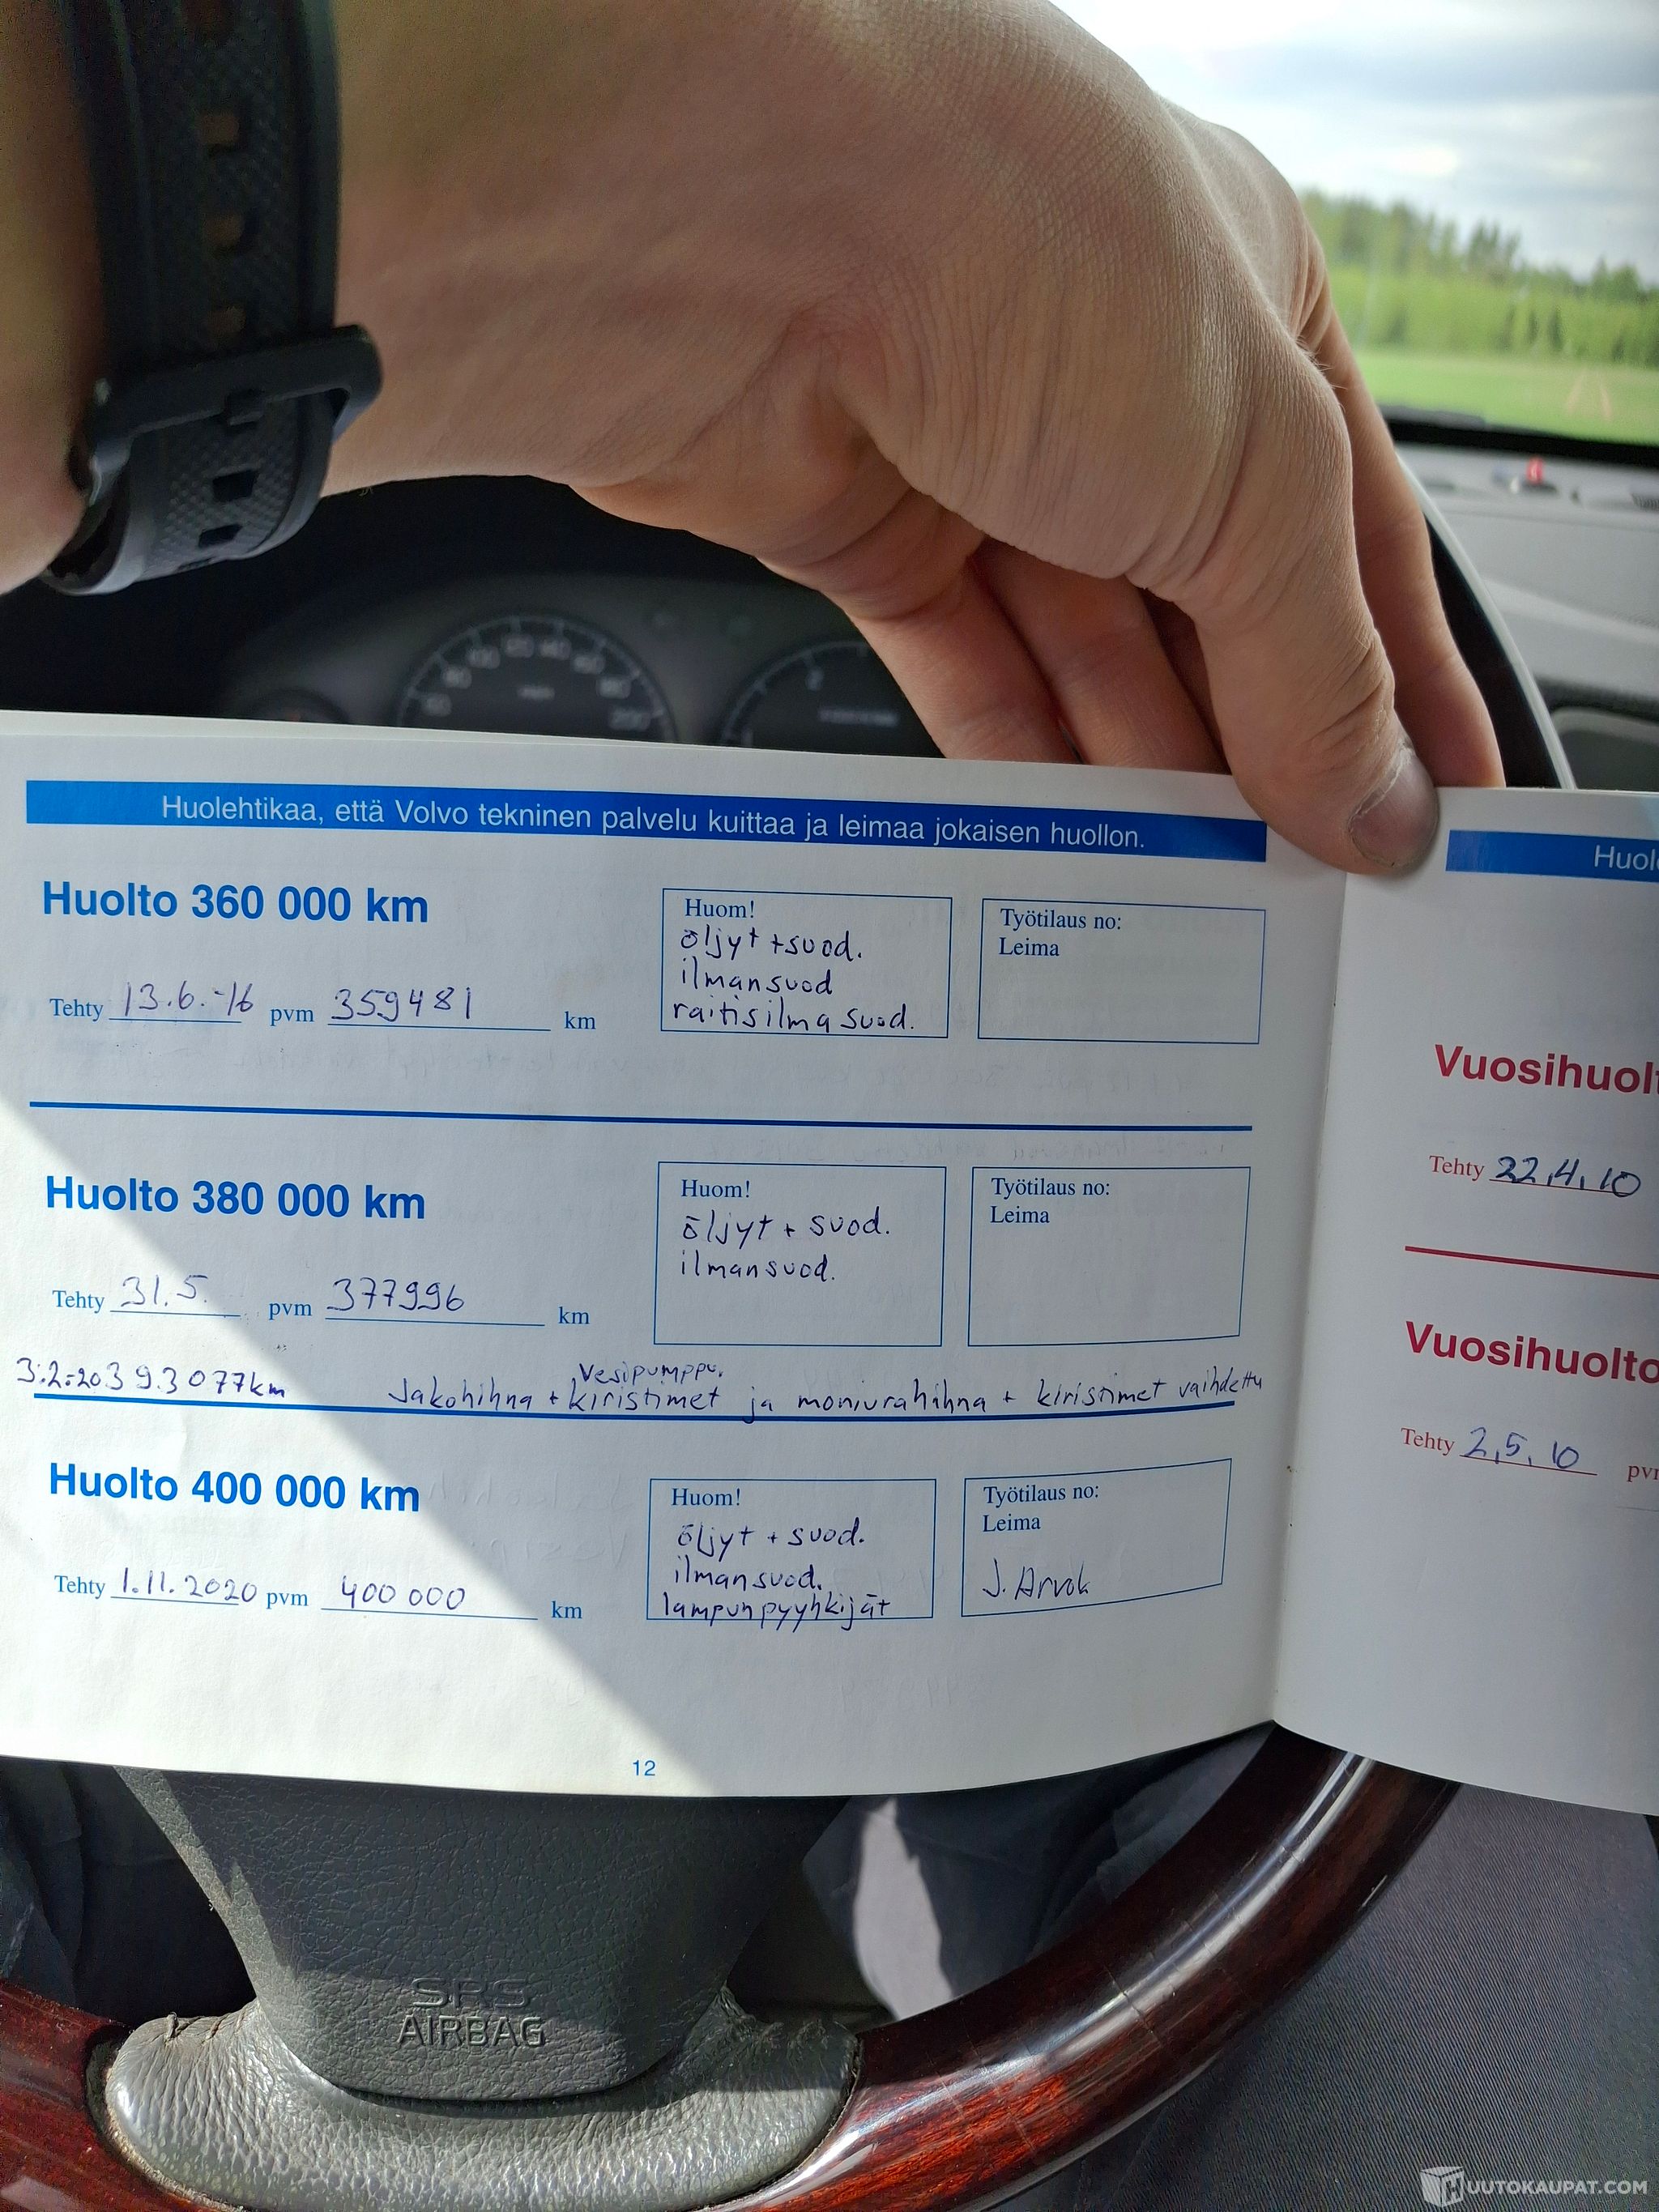 Huolehtikaa, että Volvo tekninen palvelu kuittaa ja leimaa jokaisen huollon.
Huolto 360 000 km
Tehty 13.6.-16 pvm 359481 km
Huom!
öljyt +suod.
ilmansuod
raitisilmasuod.
Työtilaus no:
Leima
Huolto 380 000 km
Tehty 31.5. pvm 377996 km
Huom!
öljyt + suod.
ilmansuod.
Työtilaus no:
Leima
Vesipumppu.
3.2-20 393077km Jakohihna + kiristimet ja moniurahihna + kiristimet vaihdettu
Huolto 400 000 km
Tehty 1.11.2020 pvm 400 000 km
Huom!
öljyt + suod.
ilmansuod.
lampunpyyhkijät
Työtilaus no:
Leima
12
Vuosihuolt
Tehty 22,4,10
Vuosihuolto
Tehty 2,5,10
SRS
AIRBAG
HUUTOKAUPAT.COM